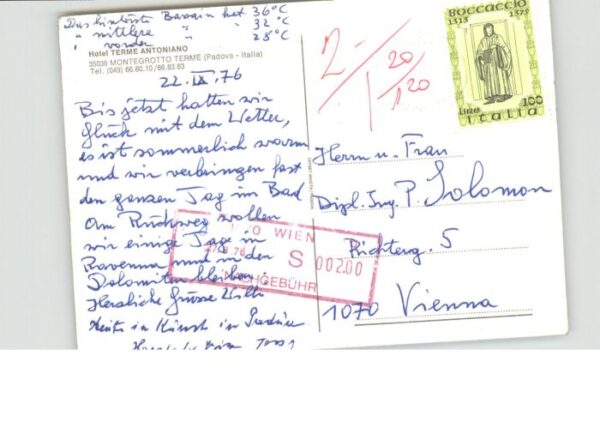 Das hinterste Bassin hat 36°C
" mittlere " 32°C
" vordere " 28°C
Hotel TERME ANTONIANO
35036 MONTEGROTTO TERME (Padova - Italia)
Tel. (049) 66.80.10/66.83.83
22.IX.76
Bis jetzt hatten wir
Glück mit dem Wetter,
es ist sommerlich warm
und wir verbringen fast
den ganzen Tag im Bad
Am Rückweg wollen
wir einige Tage in
Ravenna und in den
Dolomiten bleiben.
Herzliche Grüsse Willi
BOCCACCIO
1313 1375
Lire 100
Italia
2-
20
1 120
Herrn u. Frau
Dipl. Ing. P. Solomon
Richterg. 5
1070 Vienna
WIEN
S 002.00
NACHGEBÜHR